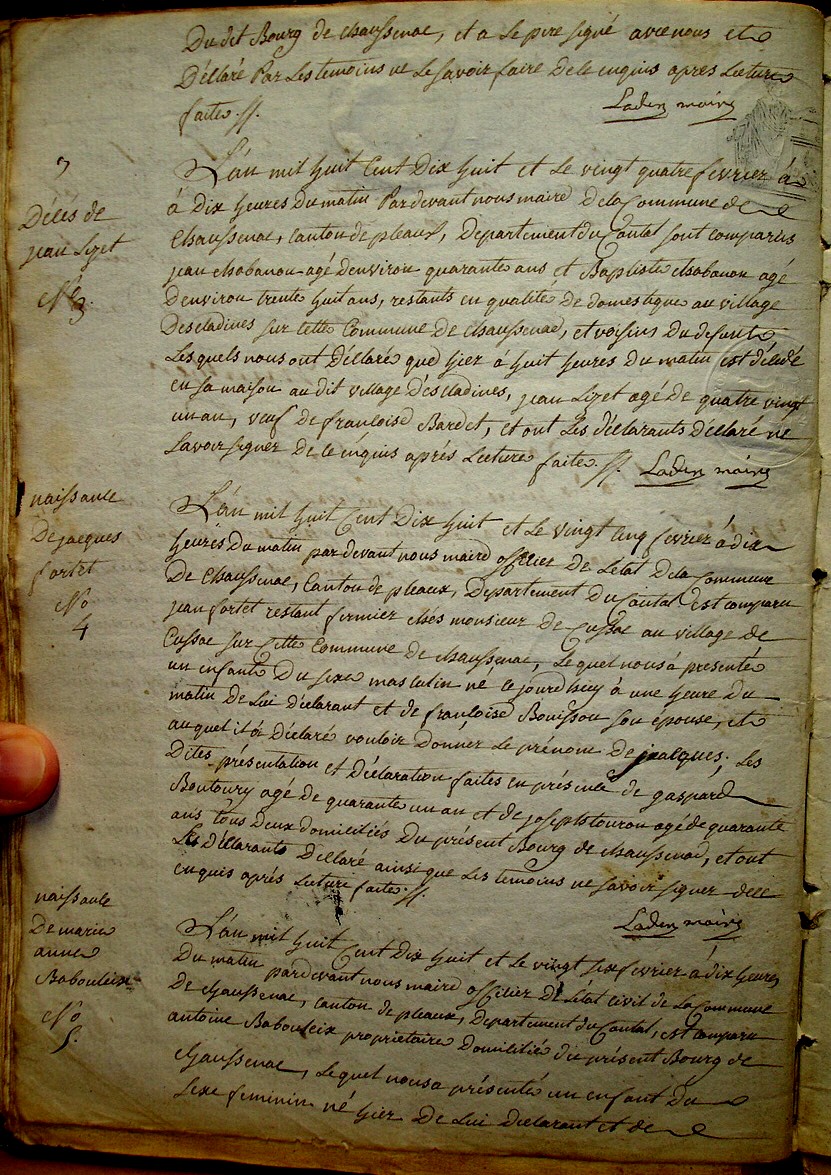 Du dit Bourg de chaussenac, et a Le pere signé avec nous et
Déclaré Par Les temoins ne Le savoir faire de ce enquis apres Lecture
faite ./.
Laden maire
Décés de
jean Lizet
N° 3.
L'an mil huit Cent Dix huit et Le vingt quatre fevrier à
à Dix heures Du matin Pardevant nous maire De la Commune de
Chaussenac, Canton de pleaux, Departement du Cantal sont comparus
jean chabanon agé denviron quarante ans et Baptiste chabanon agé
Denviron trente huit ans, restants en qualité de domestique au village
Descladines sur cette Commune de chaussenac, et voisins du defunt
Lesquels nous ont Déclaré que hier à huit heures Du matin est décedé
en sa maison au dit village Descladines, jean Lizet agé de quatre vingt
un an, veuf de francoise Bardet, et ont Les déclarants Déclaré ne
savoir signer De ce enquis aprés Lecture faite. ./. Laden maire
naissance
De jacques
fortet
N°
4
L'an mil huit Cent Dix huit et Le vingt Cinq fevrier à dix
heures Du matin par devant nous maire officier De Letat De la Commune
De Chaussenac, Canton de pleaux, Departement Du Cantal est comparu
jean fortet restant fermier chés monsieur De Cussac au village de
Cussac sur Cette Commune de chaussenac, Le quel nous à presenté
un enfant Du sexe masculin né Ce jourdhuy à une heure Du
matin De Lui declarant et de francoise Bouissou son epouse, et
auquel il à Déclaré vouloir Donner Le prénom De jacques; Les
Dites présentation et Déclaration faites en présence de gaspard
Boutoury agé de quarante un an et de joseph touron agé de quarante
ans tous Deux domiciliés Du présent Bourg de chaussenac, et ont
Les Déclarants Déclaré ainsi que Les temoins ne savoir signer de ce
enquis aprés Lecture faite ./.
Laden maire
naissance
De marie
anne
Babouleix
N°
5.
L'an mil huit Cent Dix huit et Le vingt six fevrier à dix heures
Du matin pardevant nous maire officier De L'état civil de La Commune
De chaussenac, canton de pleaux, Departement du Cantal, est comparu
antoine Babouleix propriétaire Domicilié du présent Bourg de
chaussenac, Lequel nous a présenté un enfant du
sexe feminin né hier De Lui Déclarant et de